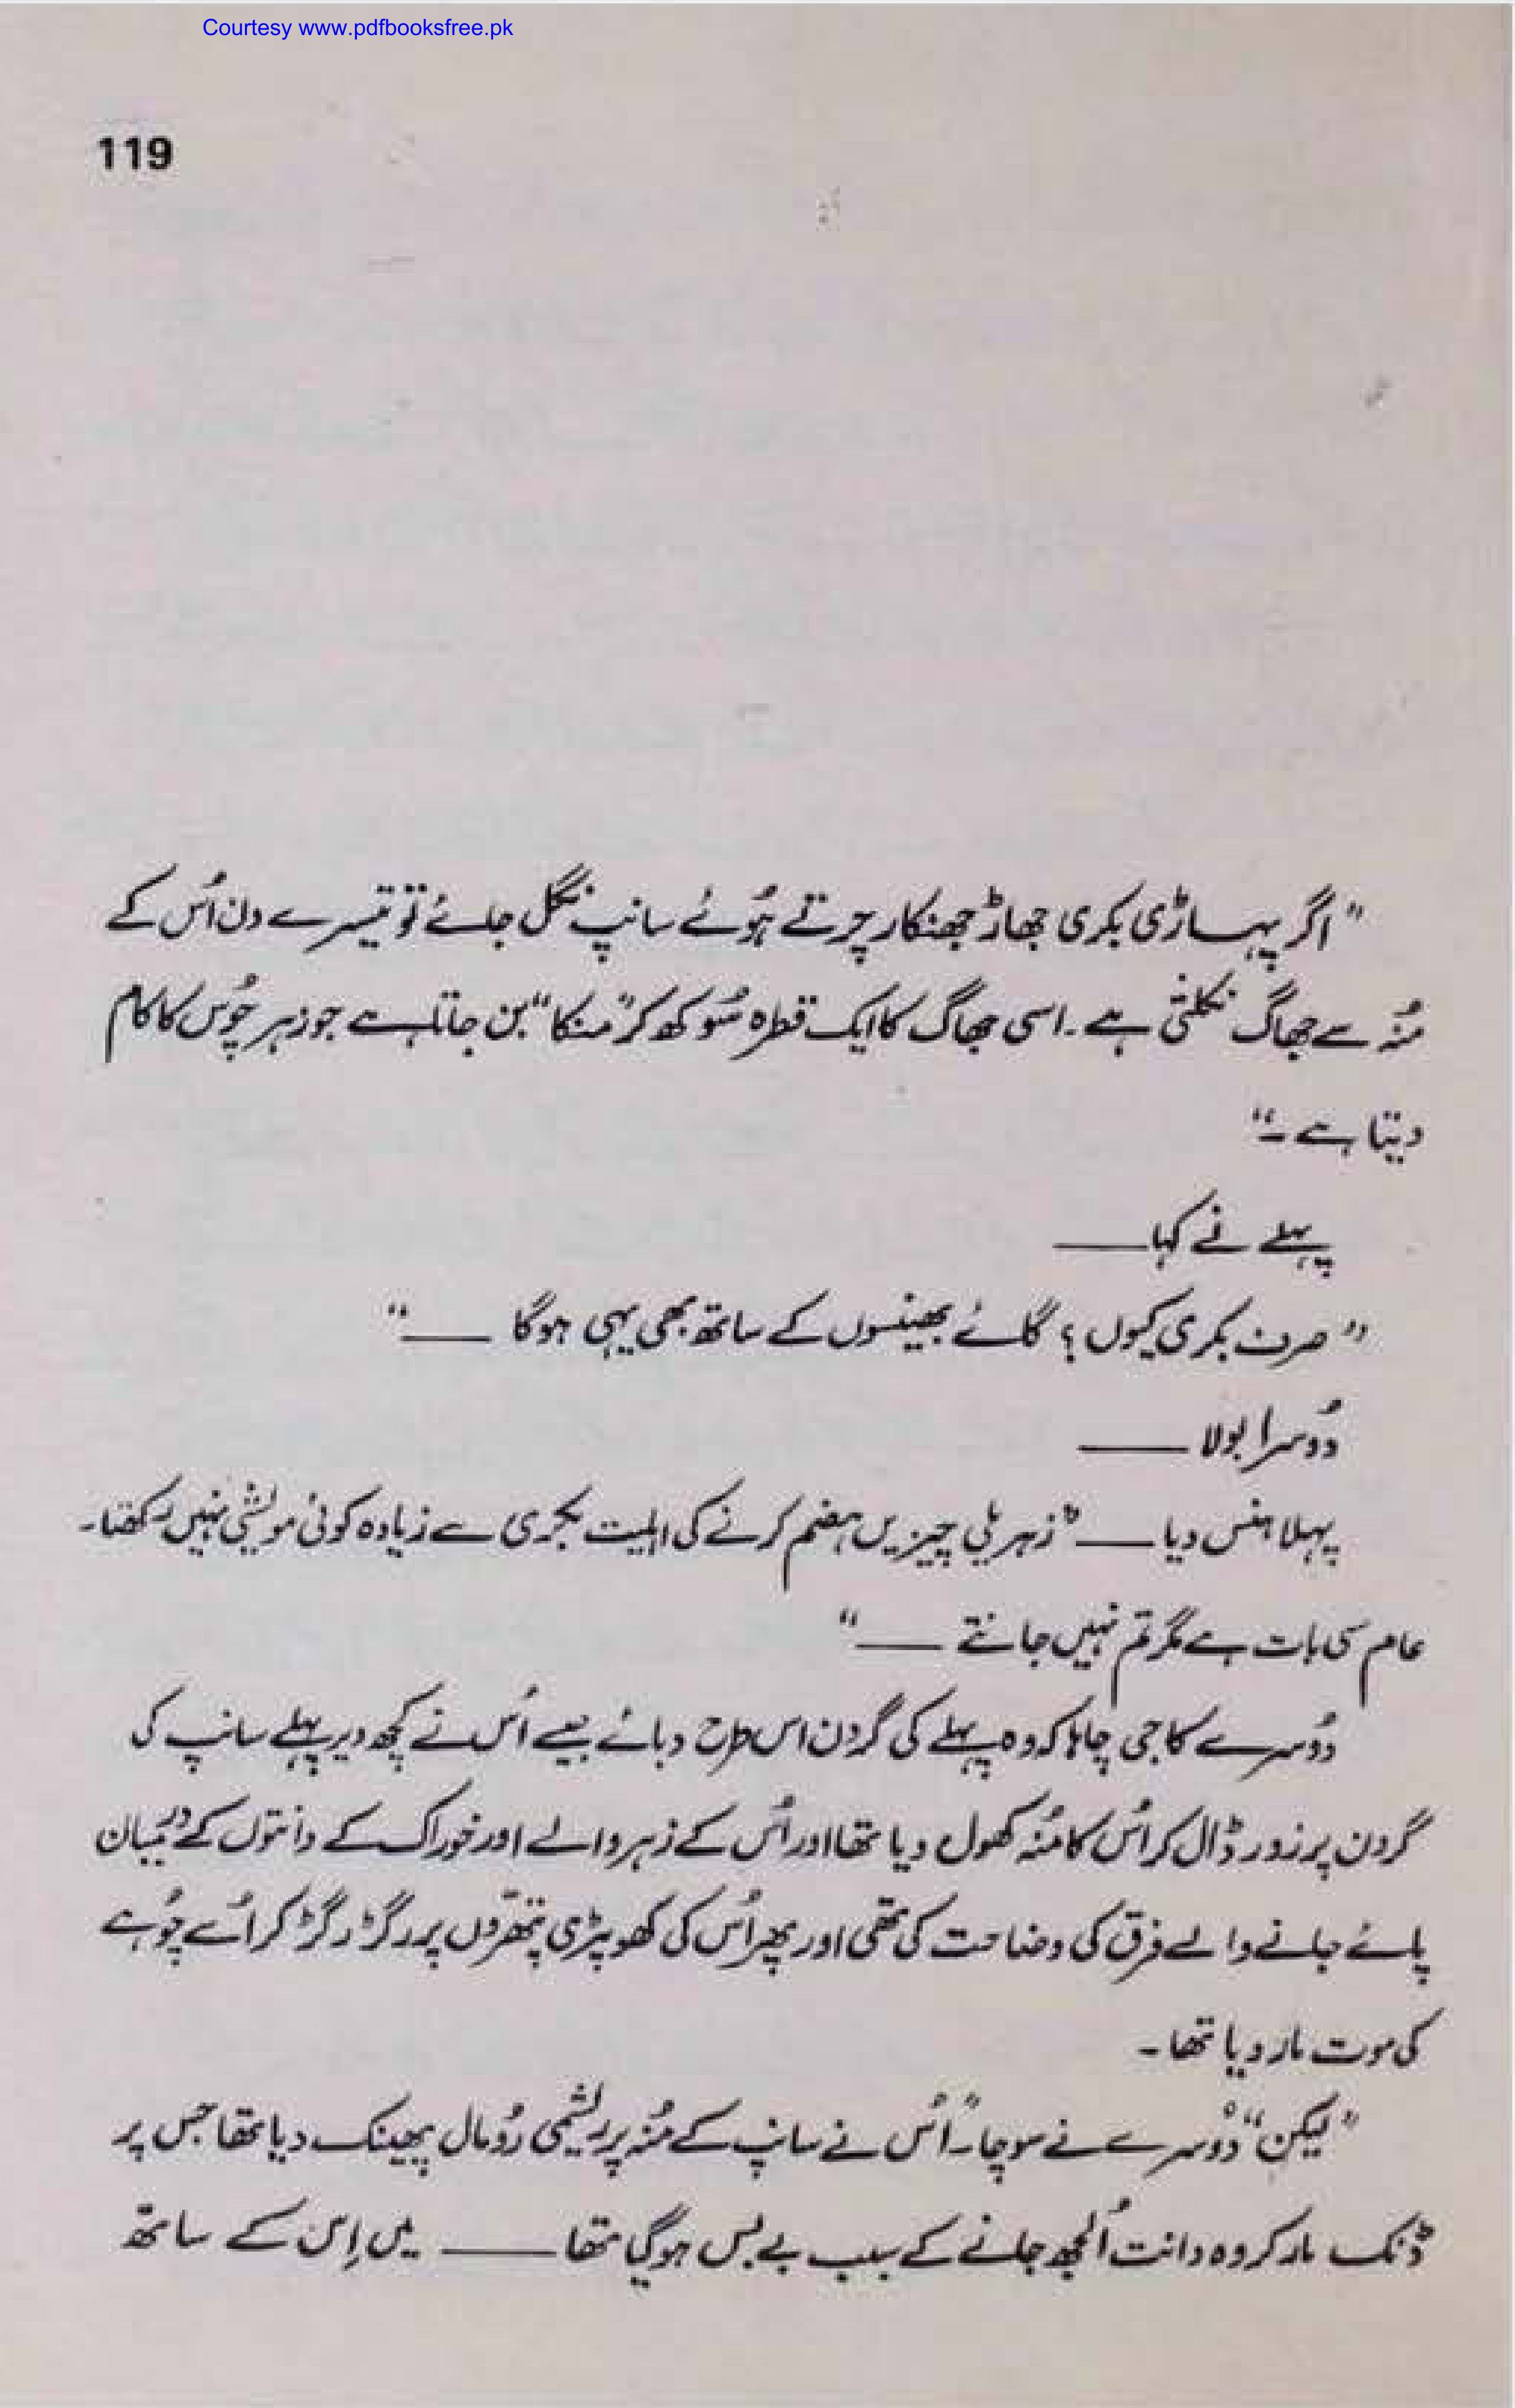 Courtesy www.pdfbooksfree.pk
119
" اگر پہاڑی بکری جھاڑ جھنکار چرتے ہُوئے سانپ نگل جائے تو تیسرے دن اُس کے
مُنہ سے جھاگ نکلتی ہے ۔ اسی جھاگ کا ایک قطرہ سُوکھ کر "منکا" بن جاتا ہے جو زہر چُوس کا کام
دیتا ہے ۔"
پہلے نے کہا ——
" صرف بکری کیوں ؟ گائے بھینسوں کے ساتھ بھی یہی ہوگا ——"
دُوسرا بولا ——
پہلا ہنس دیا —— "زہریلی چیزیں ہضم کرنے کی اہلیت بکری سے زیادہ کوئی مویشی نہیں رکھتا ۔
عام سی بات ہے مگر تم نہیں جانتے ——"
دُوسرے کا جی چاہا کہ وہ پہلے کی گردن اس طرح دبائے جیسے اُس نے کچھ دیر پہلے سانپ کی
گردن پر زور ڈال کر اُس کا مُنہ کھول دیا تھا اور اُس کے زہر والے اور خوراک کے دانتوں کے درمیان
پائے جانے والے فرق کی وضاحت کی تھی اور پھر اُس کی کھوپڑی پتھروں پر رگڑ رگڑ کر اُسے چُوہے
کی موت مار دیا تھا ۔
" لیکن" دُوسرے نے سوچا ۔ "اُس نے سانپ کے مُنہ پر ریشمی رُومال پھینک دیا تھا جس پر
ڈنک مار کر وہ دانت اُلجھ جانے کے سبب بے بس ہوگیا تھا —— میں اِس کے ساتھ